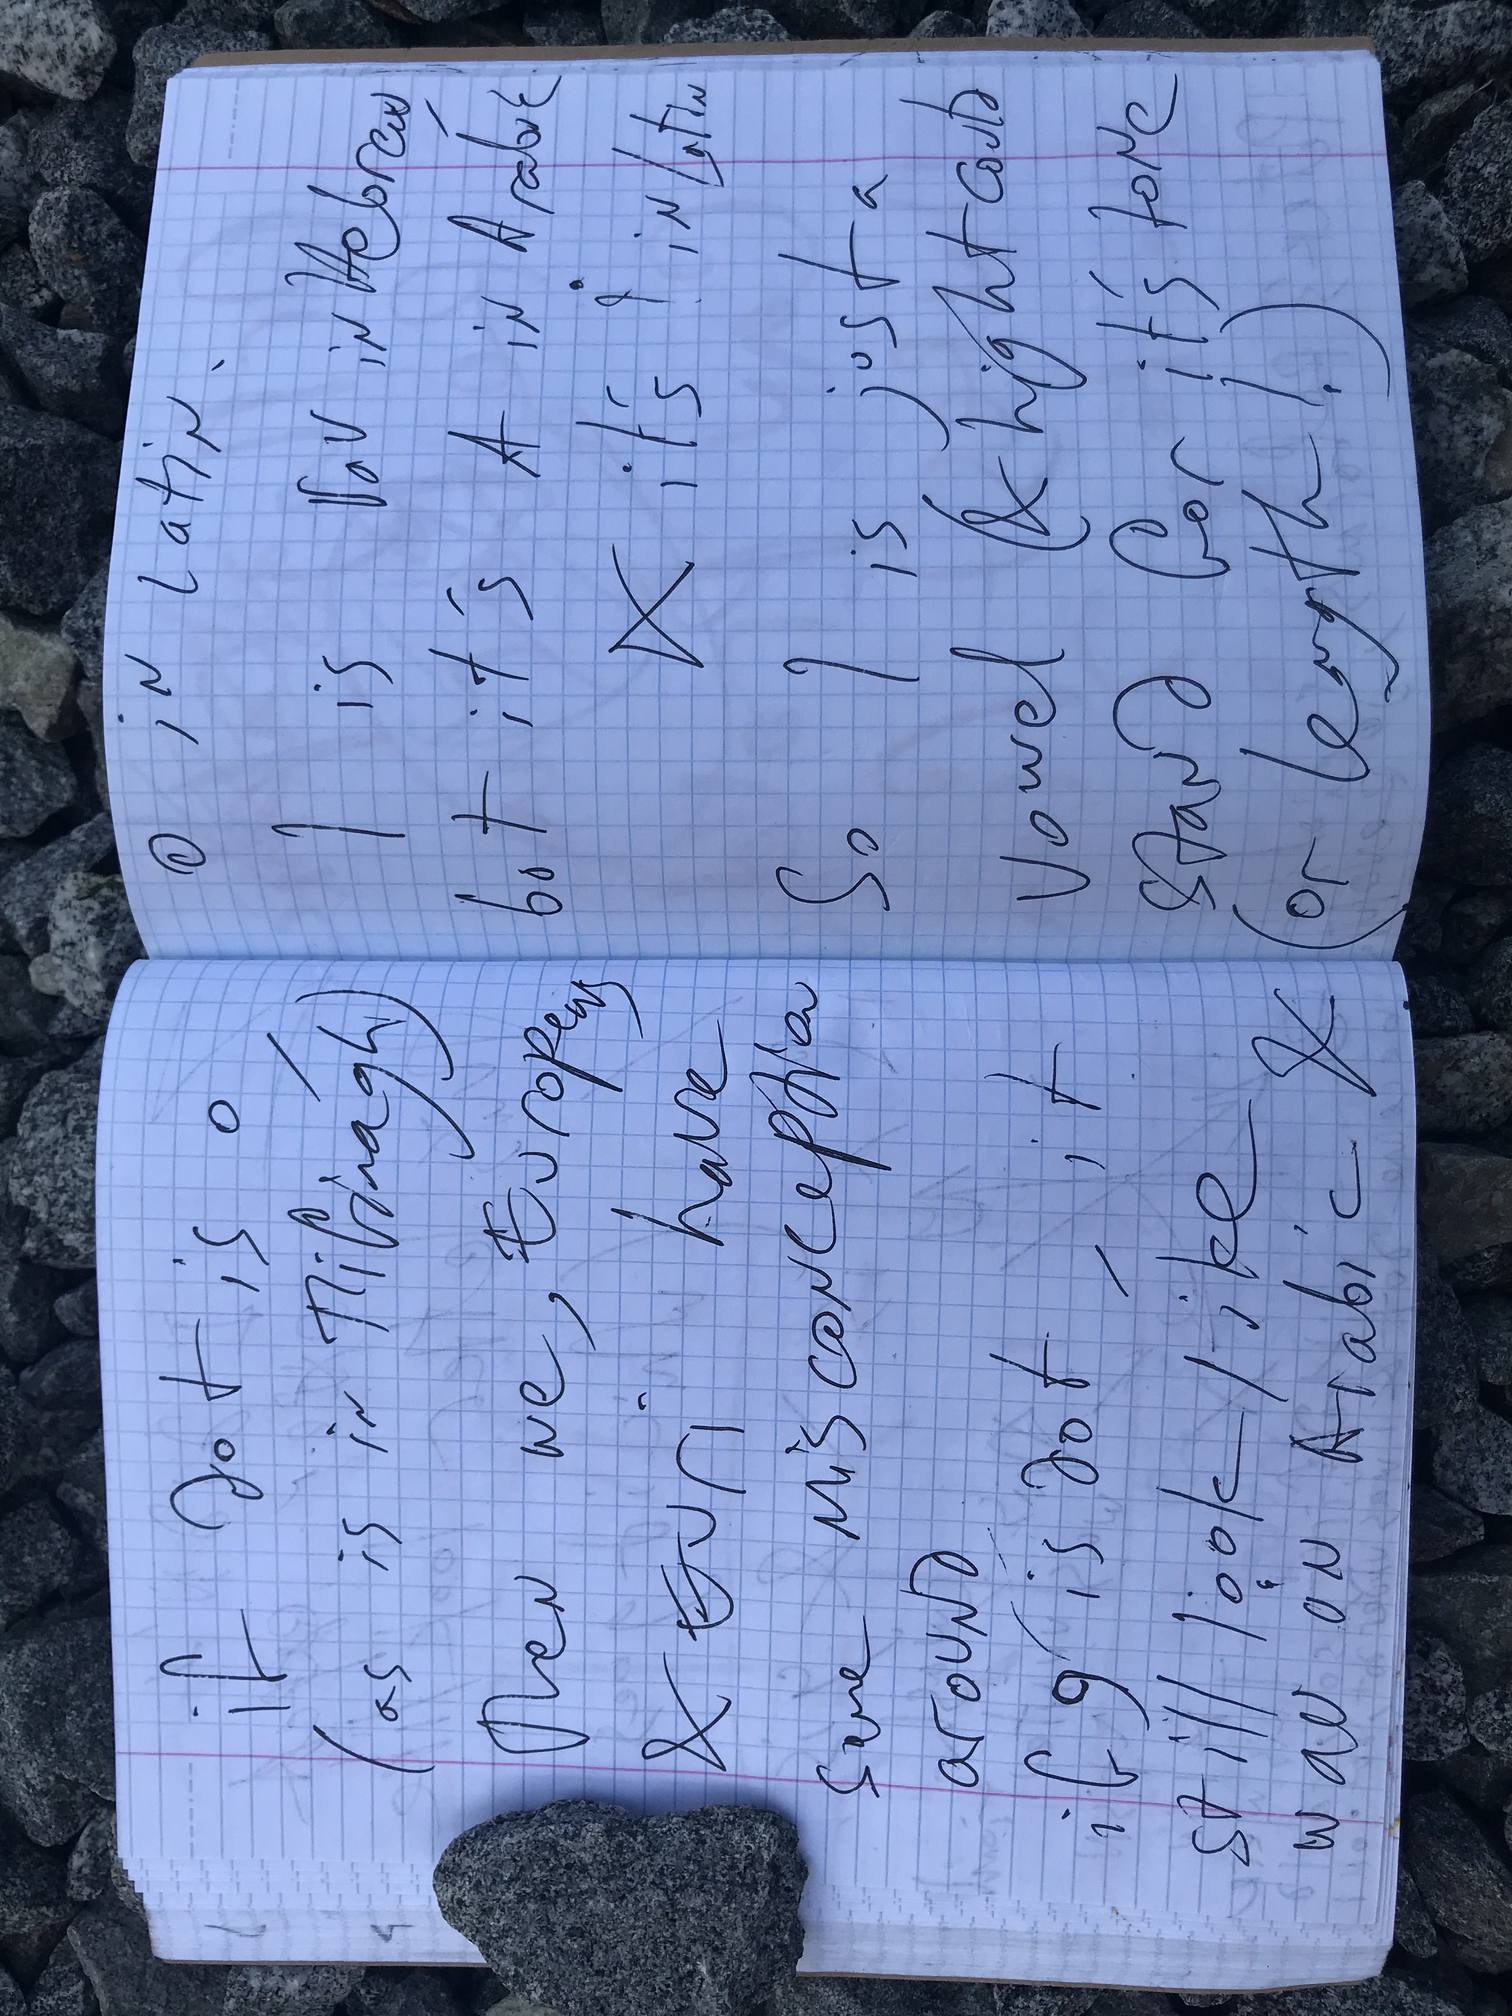 if dot is o /
(as is in Tifinagh)
Then we, Europeans
& have
same misconception
around
if 9 is dot, it
still look like
waw on Arabic &
o in Latin.
ו is Vav in Hebrew
but it's A in Arabic
& it's j in Latin
So ו is just a
vowel (& hight could
stand for it's tone
(or length).)